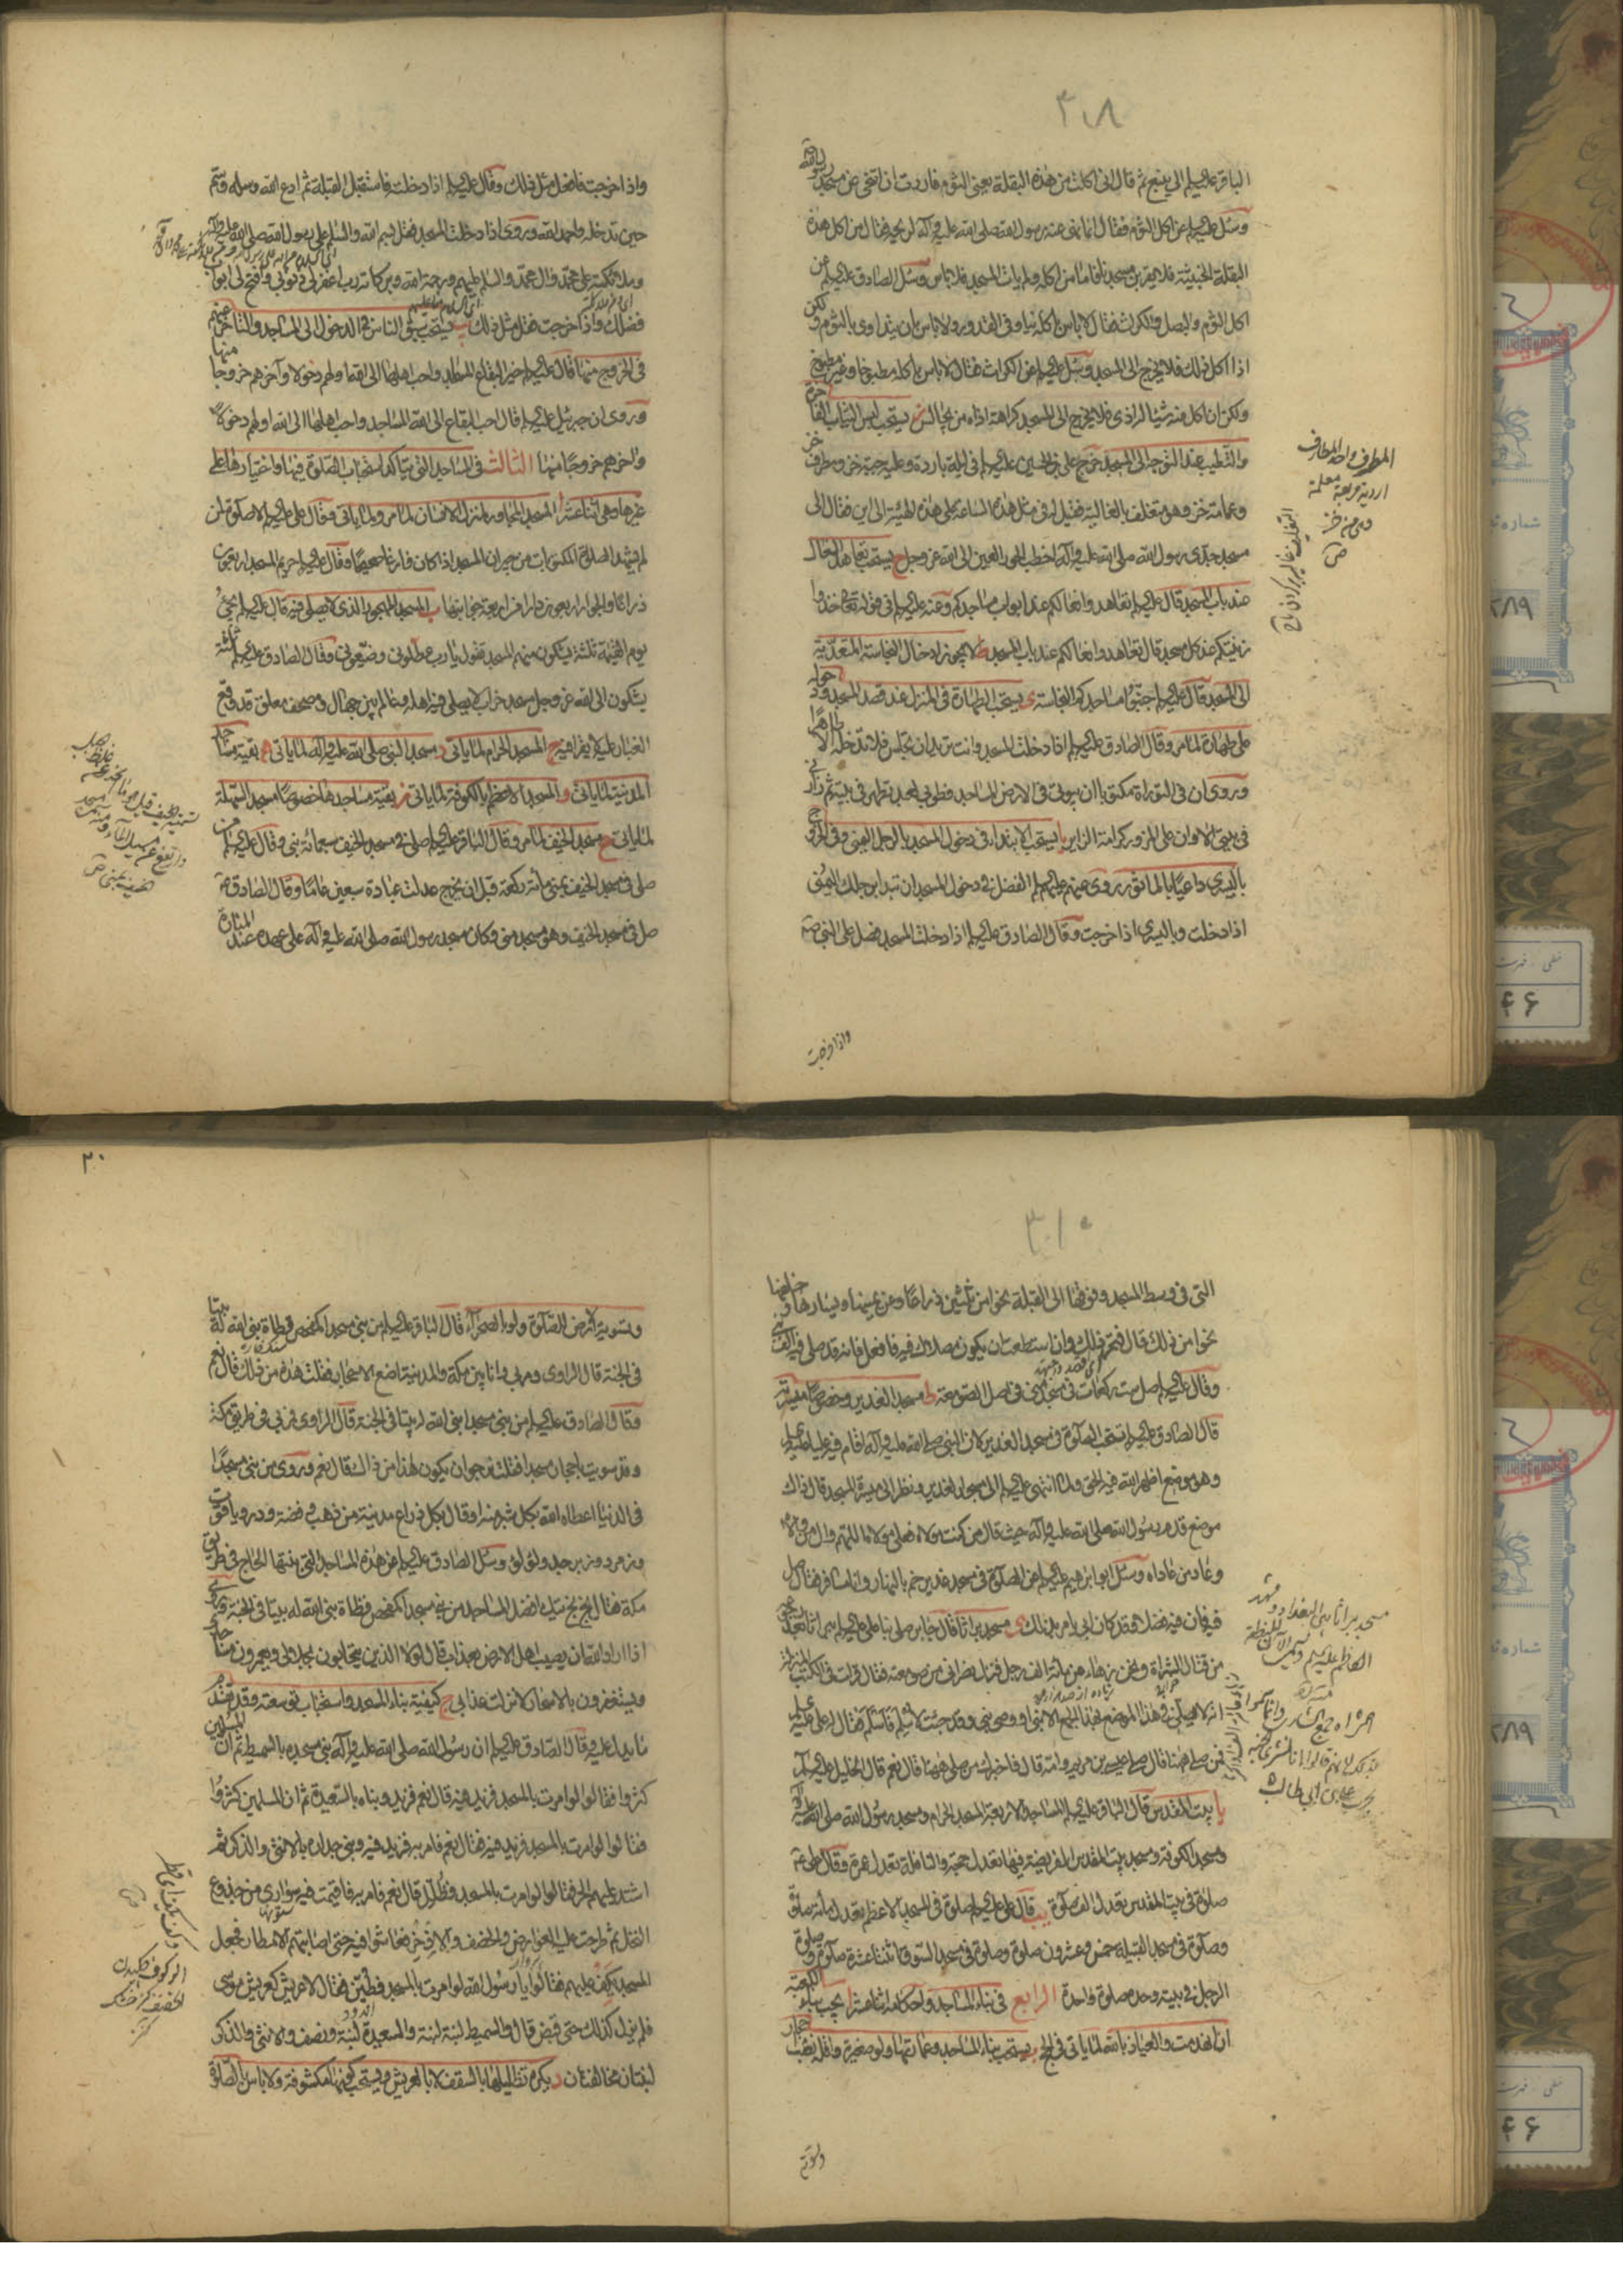 ۳۰۸
الباقر عليه السلام الى ينبع ثم قال انى اكلت من هذه البقلة يعنى الثوم فاردت ان اتنحى عن مسجد رسول الله
وسئل عليه السلام عن اكل الثوم فقال انما نهى عنه رسول الله صلى الله عليه وآله لريحه فقال من اكل هذه
البقلة الخبيثة فلا يقرب مسجدنا فاما من اكله ولم يات المسجد فلا باس وسئل الصادق عليه السلام عن
اكل الثوم والبصل والكراث فقال لا باس باكله نيا وفى القدور ولا باس بان يتداوى بالثوم ولكن
اذا اكل ذلك فلا يخرج الى المسجد وسئل عليه السلام عن الكراث فقال لا باس باكله مطبوخا وغير مطبوخ
ولكن ان اكل منه شيئا له اذى فلا يخرج الى المسجد كراهة اذاه من يجالس ز يستحب لبس الثياب الفاخرة
والتطيب عند التوجه الى المسجد خرج على بن الحسين عليه السلام فى ليلة باردة وعليه جبة خز ومطرف خز
وعمامة خز وهو متغلف بالغالية فقيل له فى مثل هذه الساعة على هذه الهيئة الى اين فقال الى
مسجد جدى رسول الله صلى الله عليه وآله اخطب الحور العين الى الله عز وجل ح يستحب تعاهد النعال
عند باب المسجد قال عليه السلام تعاهدوا نعالكم عند ابواب مساجدكم وعنه عليه السلام فى قوله تعالى خذوا
زينتكم عند كل مسجد قال تعاهدوا نعالكم عند باب المسجد ط لا يجوز ادخال النجاسة المتعدية
الى المسجد قال عليه السلام جنبوا مساجدكم النجاسة ى يستحب الطهارة فى المنزل عند قصد المسجد ودخوله
على طهارة لما مر وقال الصادق عليه السلام اذا دخلت المسجد وانت تريد ان تجلس فلا تدخله الا طاهرا
وروى ان فى التوراة مكتوبا ان بيوتى فى الارض المساجد فطوبى لعبد تطهر فى بيته ثم زارنى
فى بيتى الا وان على المزور كرامة الزاير يا يستحب الابتداء فى دخول المسجد بالرجل اليمنى وفى الخروج
باليسرى داعيا بالماثور روى عنهم عليهم السلام الفضل فى دخول المسجد ان تبدا برجلك اليمنى
اذا دخلت وباليسرى اذا خرجت وقال الصادق عليه السلام اذا دخلت المسجد فصل على النبى ص
واذا خرجت
المطرف واحد المطارف
اردية مربعة معلمة
من خز
ص
واذا خرجت فافعل مثل ذلك وقال عليه السلام اذا دخلت فاستقبل القبلة ثم ادع الله وسله وسم
حين تدخله واحمد الله وروى اذا دخلت المسجد فقل بسم الله والسلام على رسول الله صلى الله عليه وآله
وملائكته على محمد وآل محمد والسلام عليهم ورحمة الله وبركاته رب اغفر لى ذنوبى وافتح لى ابواب
فضلك واذا خرجت فقل مثل ذلك يب يستحب سبق الناس فى الدخول الى المساجد والتاخر عنهم
فى الخروج منها قال عليه السلام خير البقاع المساجد واحب اهلها الى الله اولهم دخولا وآخرهم خروجا منها
وروى ان جبرئيل عليه السلام قال احب البقاع الى الله المساجد واحب اهلها الى الله اولهم دخولا
وآخرهم خروجا منها الثالث فى المساجد التى يتاكد استحباب الصلوة فيها واختيارها على
غيرها وهى اثنا عشر ا المسجد المجاور لمنزل الانسان لما مر ولما ياتى وقال على عليه السلام لا صلوة لمن
لم يشهد الصلوة المكتوبات من جيران المسجد اذا كان فارغا صحيحا وقال عليه السلام حريم المسجد اربعون
ذراعا والجوار اربعون دارا من اربعة جوانبها ب المسجد المهجور الذى لا يصلى فيه قال عليه السلام يجئ
يوم القيمة ثلثة يشكون منهم المسجد تقول يا رب عطلونى وضيعونى وقال الصادق عليه السلام ثلثة
يشكون الى الله عز وجل مسجد خراب لا يصلى فيه اهله وعالم بين جهال ومصحف معلق قد وقع
الغبار عليه لا يقرا فيه ج المسجد الحرام لما ياتى د مسجد النبى صلى الله عليه وآله لما ياتى ه بقية مساجد
المدينة لما ياتى و المسجد الاعظم بالكوفة لما ياتى ز بقية مساجدها خصوصا مسجد السهلة
لما ياتى ح مسجد الخيف لما مر وقال الباقر عليه السلام صلى فى مسجد الخيف سبعمائة نبى وقال عليه السلام من
صلى فى مسجد الخيف بمنى مائة ركعة قبل ان يخرج عدلت عبادة سبعين عاما وقال الصادق ع
صل فى مسجد الخيف وهو مسجد منى وكان مسجد رسول الله صلى الله عليه وآله على عهده عند المنارة
۳۱۰
التى فى وسط المسجد وفوقها الى القبلة نحوا من ثلثين ذراعا وعن يمينها ويسارها وخلفها
نحوا من ذلك قال فتحر ذلك وان استطعت ان يكون مصلاك فيه فافعل فانه قد صلى فيه الف نبى
وقال عليه السلام صل ست ركعات فى مسجد منى فى اصل الصومعة ط مسجد الغدير وخصوصا ميسرته
قال الصادق عليه السلام تستحب الصلوة فى مسجد الغدير لان النبى صلى الله عليه وآله اقام فيه عليا عليه السلام
وهو موضع اظهر الله فيه الحق ولما انتهى عليه السلام الى مسجد الغدير ونظر الى ميسرة المسجد قال ذاك
موضع قدم رسول الله صلى الله عليه وآله حيث قال من كنت مولاه فعلى مولاه اللهم وال من والاه
وعاد من عاداه وسئل ابو ابرهيم عليه السلام عن الصلوة فى مسجد غدير خم بالنهار وانا مسافر فقال صل
فيه فان فيه فضلا وقد كان ابى يامر بذلك ى مسجد براثا قال جابر صلى بنا على عليه السلام ببراثا بعد رجوعه
من قتال الشراة ونحن زهاء من مائة الف رجل فنزل نصرانى من صومعته فقال قرات فى الكتب المنزلة
انه لا يصلى فى هذا الموضع بهذا الجمع الا نبى او وصى نبى وقد جئت لاسلم فاسلم فقال له على عليه السلام
فمن صلى ههنا قال صلى عيسى بن مريم وامه قال فاخبرك من صلى ههنا قال نعم قال الخليل عليه السلام
يا بيت المقدس قال الباقر عليه السلام المساجد الاربعة المسجد الحرام ومسجد رسول الله صلى الله عليه وآله
ومسجد الكوفة ومسجد بيت المقدس الفريضة فيها تعدل حجة والنافلة تعدل عمرة وقال على ع
صلوة فى بيت المقدس تعدل الف صلوة يب قال على عليه السلام صلوة فى المسجد الاعظم تعدل مائة صلوة
وصلوة فى مسجد القبيلة خمس وعشرون صلوة وصلوة فى مسجد السوق اثنتا عشرة صلوة وصلوة
الرجل فى بيته وحده صلوة واحدة الرابع فى بناء المساجد واحكامه اثنا عشر ا يجب بناء الكعبة
ان انهدمت والعياذ بالله لما ياتى فى الحج ب يستحب بناء المساجد وعمارتها ولو صغيرة واقله نصب احجار
۲۰
وتسوية الارض للصلوة ولو بالصحراء قال الباقر عليه السلام من بنى مسجدا كمفحص قطاة بنى الله له بيتا
فى الجنة قال الراوى ومر بى وانا بين مكة والمدينة اضع الاحجار فقلت هذه من ذلك قال نعم
وقال الصادق عليه السلام من بنى مسجدا بنى الله له بيتا فى الجنة قال الراوى فمر بى فى طريق مكة
وقد سويت باحجار مسجدا فقلت نرجو ان يكون هذا من ذاك قال نعم وروى من بنى مسجدا
فى الدنيا اعطاه الله بكل شبر منه او قال بكل ذراع مدينة من ذهب وفضة ودر وياقوت
وزمرد وزبرجد ولؤلؤ وسئل الصادق عليه السلام عن هذه المساجد التى بنتها الحاج فى طريق
مكة فقال بخ بخ تيك افضل المساجد من بنى مسجدا كمفحص قطاة بنى الله له بيتا فى الجنة وروى
اذا اراد الله ان يصيب اهل الارض بعذاب قال لولا الذين يتحابون بجلالى ويعمرون مساجدى
ويستغفرون بالاسحار لانزلت عذابى ج كيفية بناء المسجد واستحباب توسعته وقد تقدم
ما يدل عليه وقال الصادق عليه السلام ان رسول الله صلى الله عليه وآله بنى مسجده بالسميط ثم ان المسلمين
كثروا فقالوا لو امرت بالمسجد فزيد فيه قال نعم فزيد وبناه بالسعيدة ثم ان المسلمين كثروا
فقالوا لو امرت بالمسجد فزيد فيه فقال نعم فامر به فزيد فيه وبنى جداره بالانثى والذكر ثم
اشتد عليهم الحر فقالوا لو امرت بالمسجد فظلل قال نعم فامر به فاقيمت فيه سوارى من جذوع
النخل ثم طرحت عليه العوارض والخصف والاذخر فعاشوا فيه حتى اصابتهم الامطار فجعل
المسجد يكف عليهم فقالوا يا رسول الله لو امرت بالمسجد فطين فقال لا عريش كعريش موسى
فلم يزل كذلك حتى قبض قال والسميط لبنة لبنة والسعيدة لبنة ونصف والانثى والذكر
لبنتان مخالفتان د يكره تظليلها بالسقف لا بالعريش ويستحب كونها مكشوفة ولا باس بالصلوة